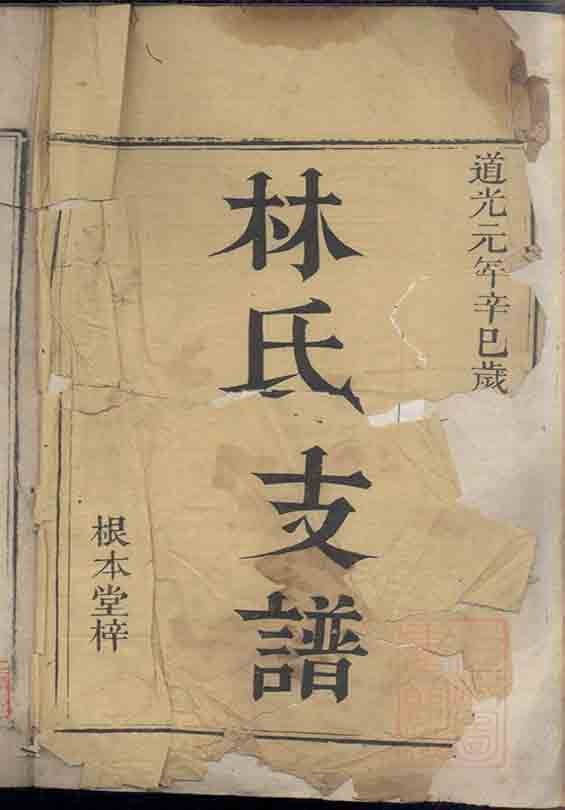 道光元年辛巳歲
林氏支譜
根本堂梓